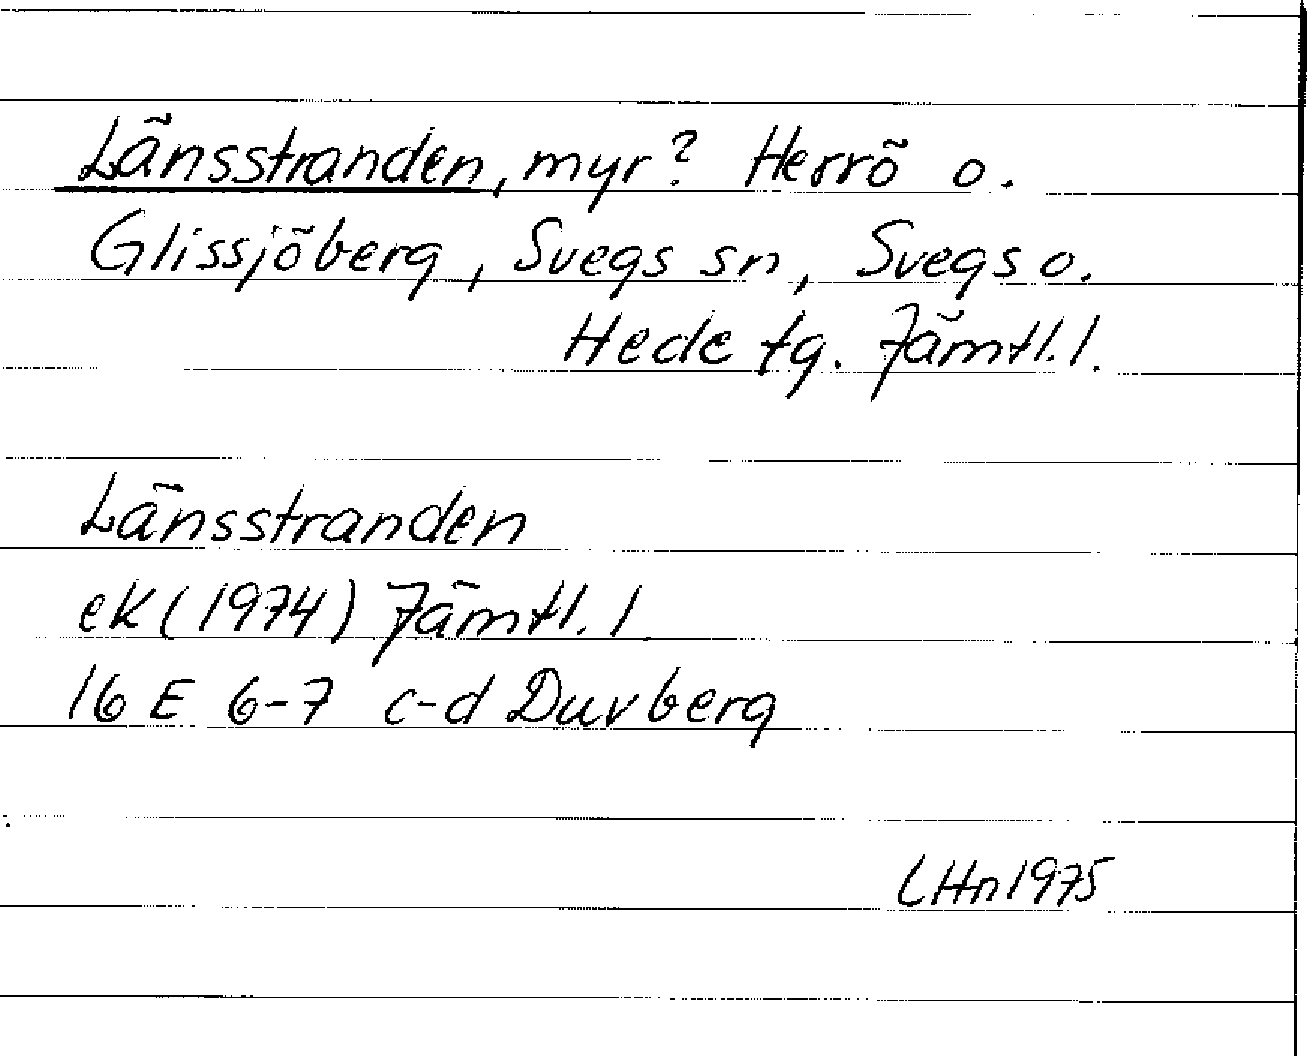 Länsstranden, myr? Herrö o.
Glissjöberg, Svegs sn, Svegs o.
Hede tg. Jämtl. l.
Länsstranden
ek (1974) Jämtl. l.
16 E 6-7 c-d Duvberg
LHn 1975